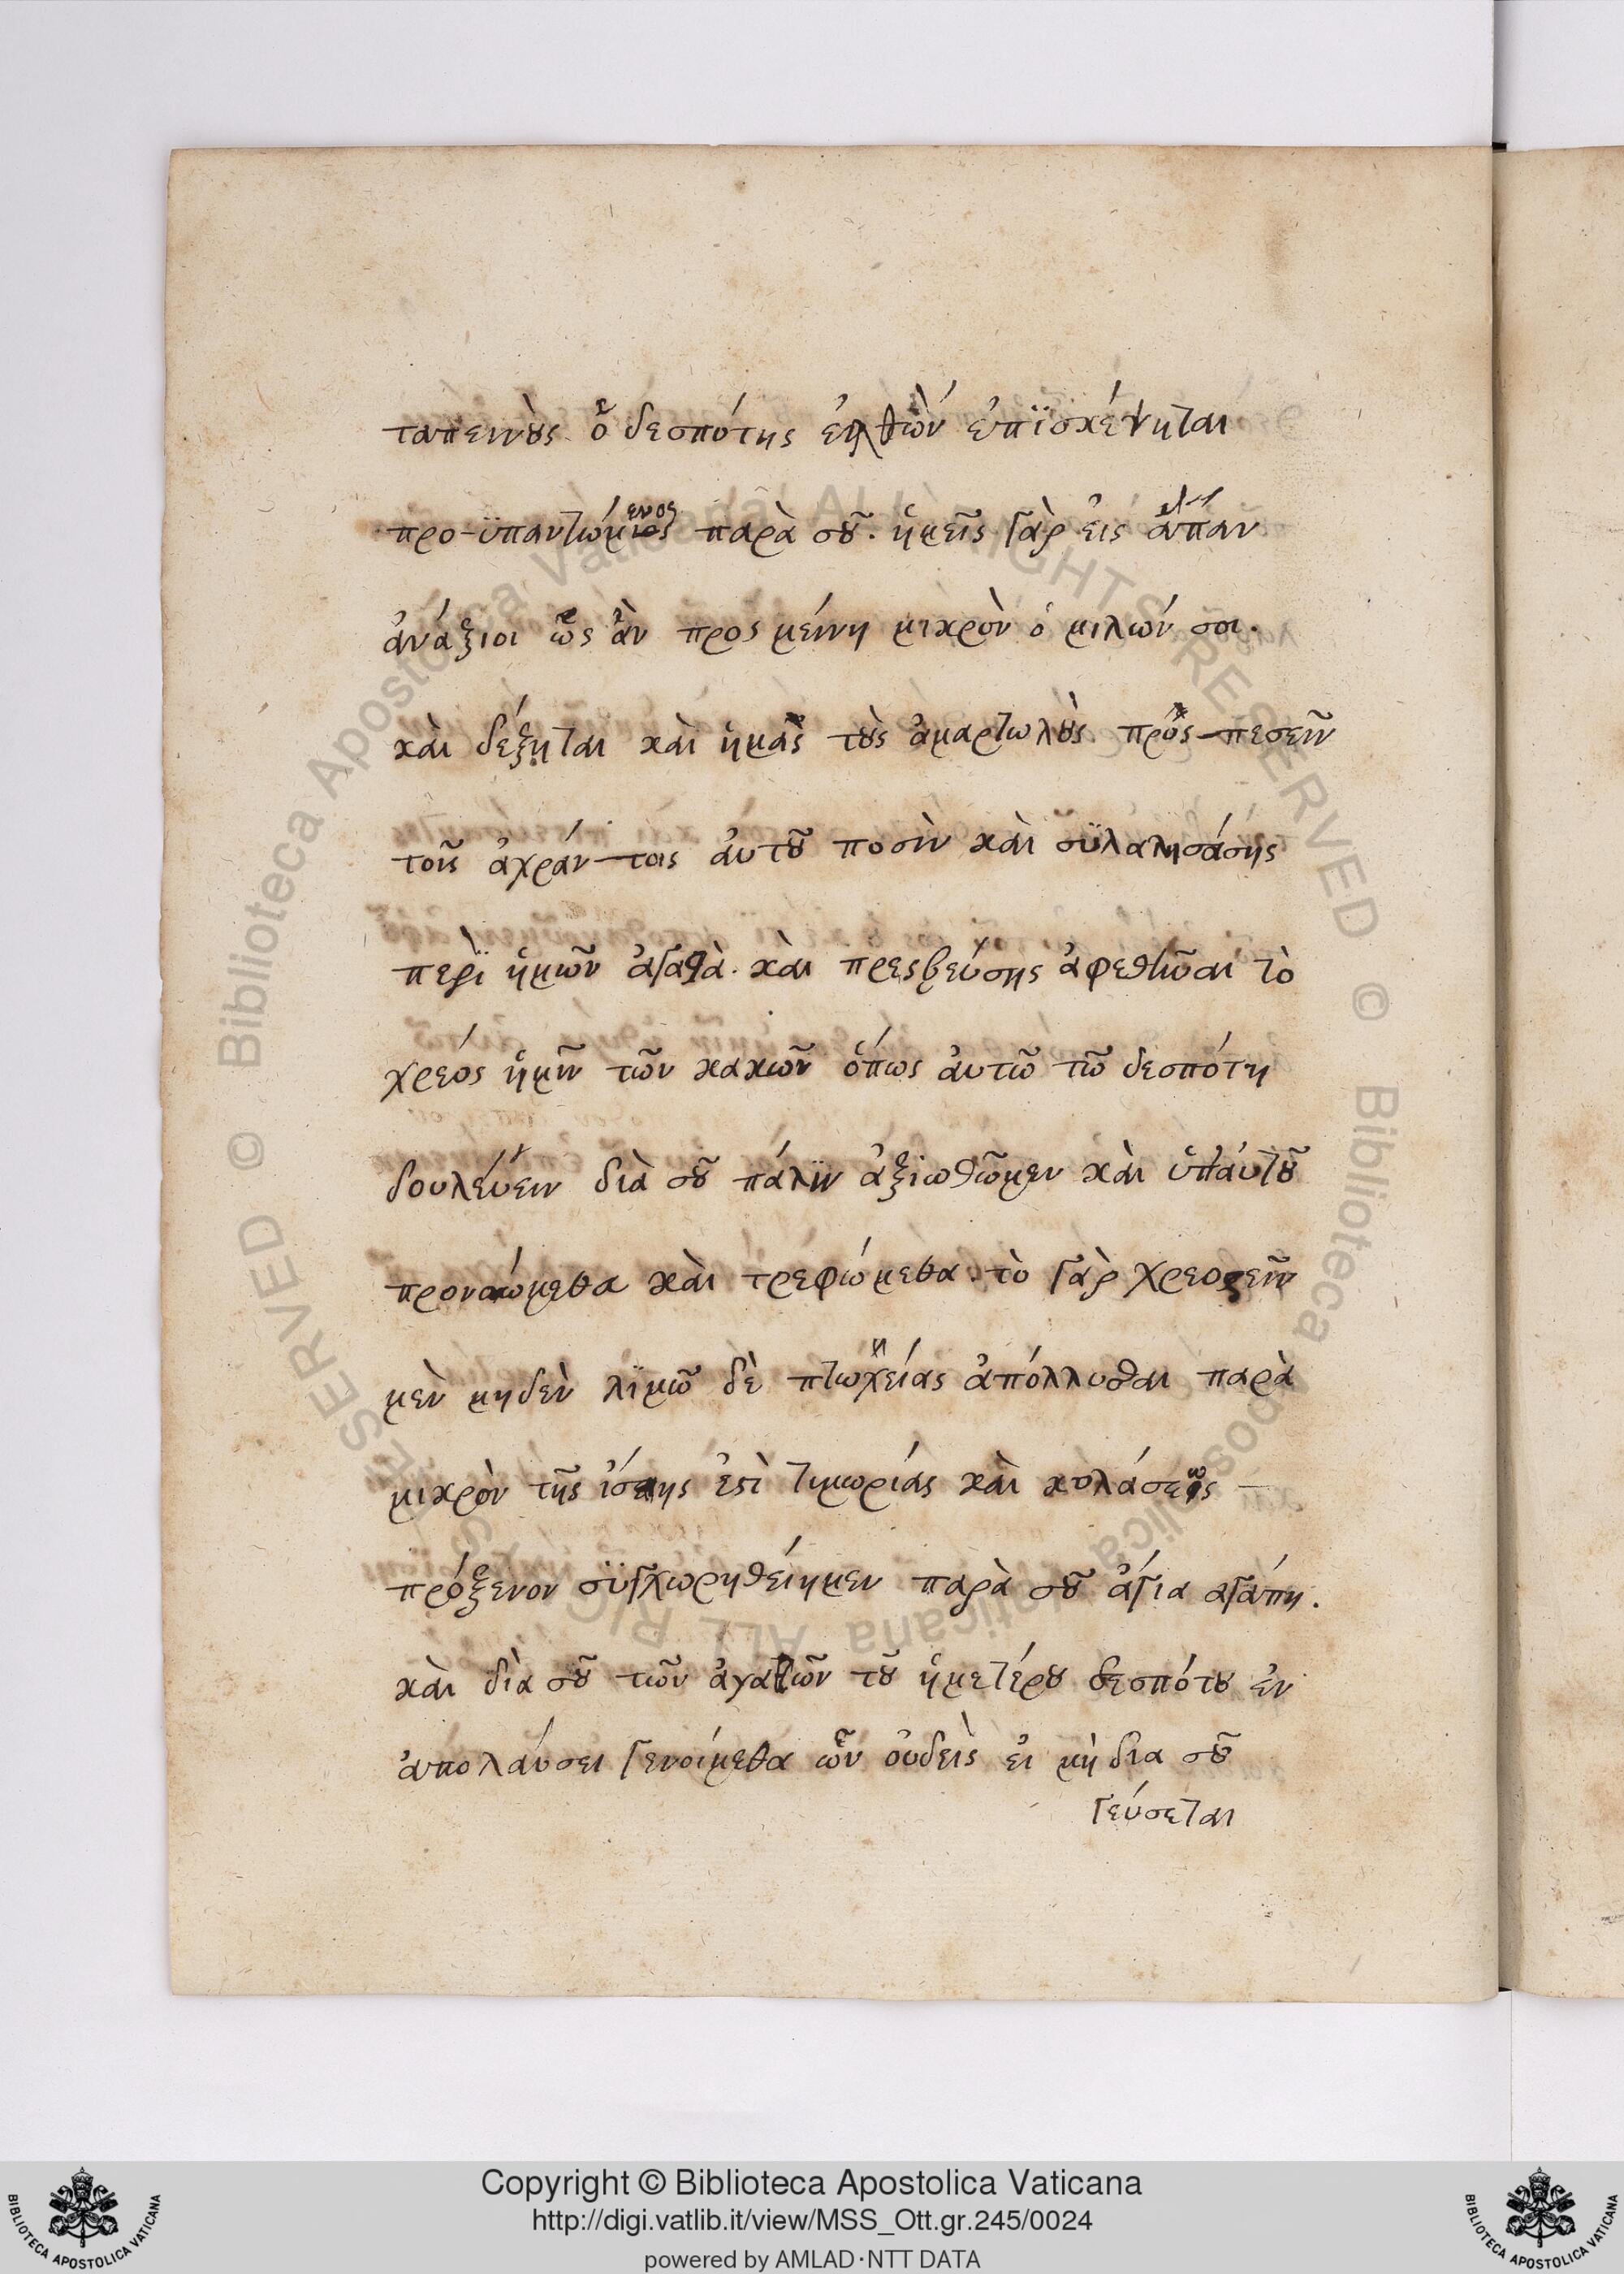 ταπεινοὺς ὁ δεσπότης ἐλθὼν ἐπϊσκέψηται
προ-ϋπαντώμενος παρὰ σοῦ. ἡμεῖς γὰρ εἰς ἅπαν
ἀνάξιοι ὡς ἂν προς μείνη μικρὸν ὁ μιλών σοι.
κὰι δέξηται κὰι ἡμᾶς τοὺς ἁμαρτωλοὺς πρὸς-πεσεῖν
τοῖς ἀχράν-τοις ἀυτοῦ ποσὶν κὰι σϋλαλησάσης
περὶ ἡμῶν ἀγαθὰ. κὰι πρεσβεύσης ἀφεθῆναι τὸ
χρέος ἡμῖν τῶν κακῶν ὅπως ἀυτῶ τῶ δεσπότη
δουλεύειν διὰ σοῦ πάλϊν ἀξϊωθῶμεν κὰι ὑπ'ἀυτοῦ
προνοιώμεθα κὰι τρεφώμεθα. τὸ γὰρ χρεοςεῖν
μὲν μηδὲν λϊμῶ δὲ πτωχείας ἀπόλλυσθαι παρὰ
μικρὸν τῆς ἴσης ἐστὶ τιμωρίας κὰι κολάσεως
πρόξενον σϋγχωρηθείημεν παρὰ σοῦ ἁγία αγάπη.
κὰι δϊὰ σοῦ τῶν ἀγαθῶν τοῦ ἡμετέρου δεσπότου ἐν
ἀπολάυσει γενοίμεθα ὧν ὀυδεὶς ἐι μὴ δια σοῦ
γεύσεται
Copyright © Biblioteca Apostolica Vaticana
http://digi.vatlib.it/view/MSS_Ott.gr.245/0024
powered by AMLAD·NTT DATA